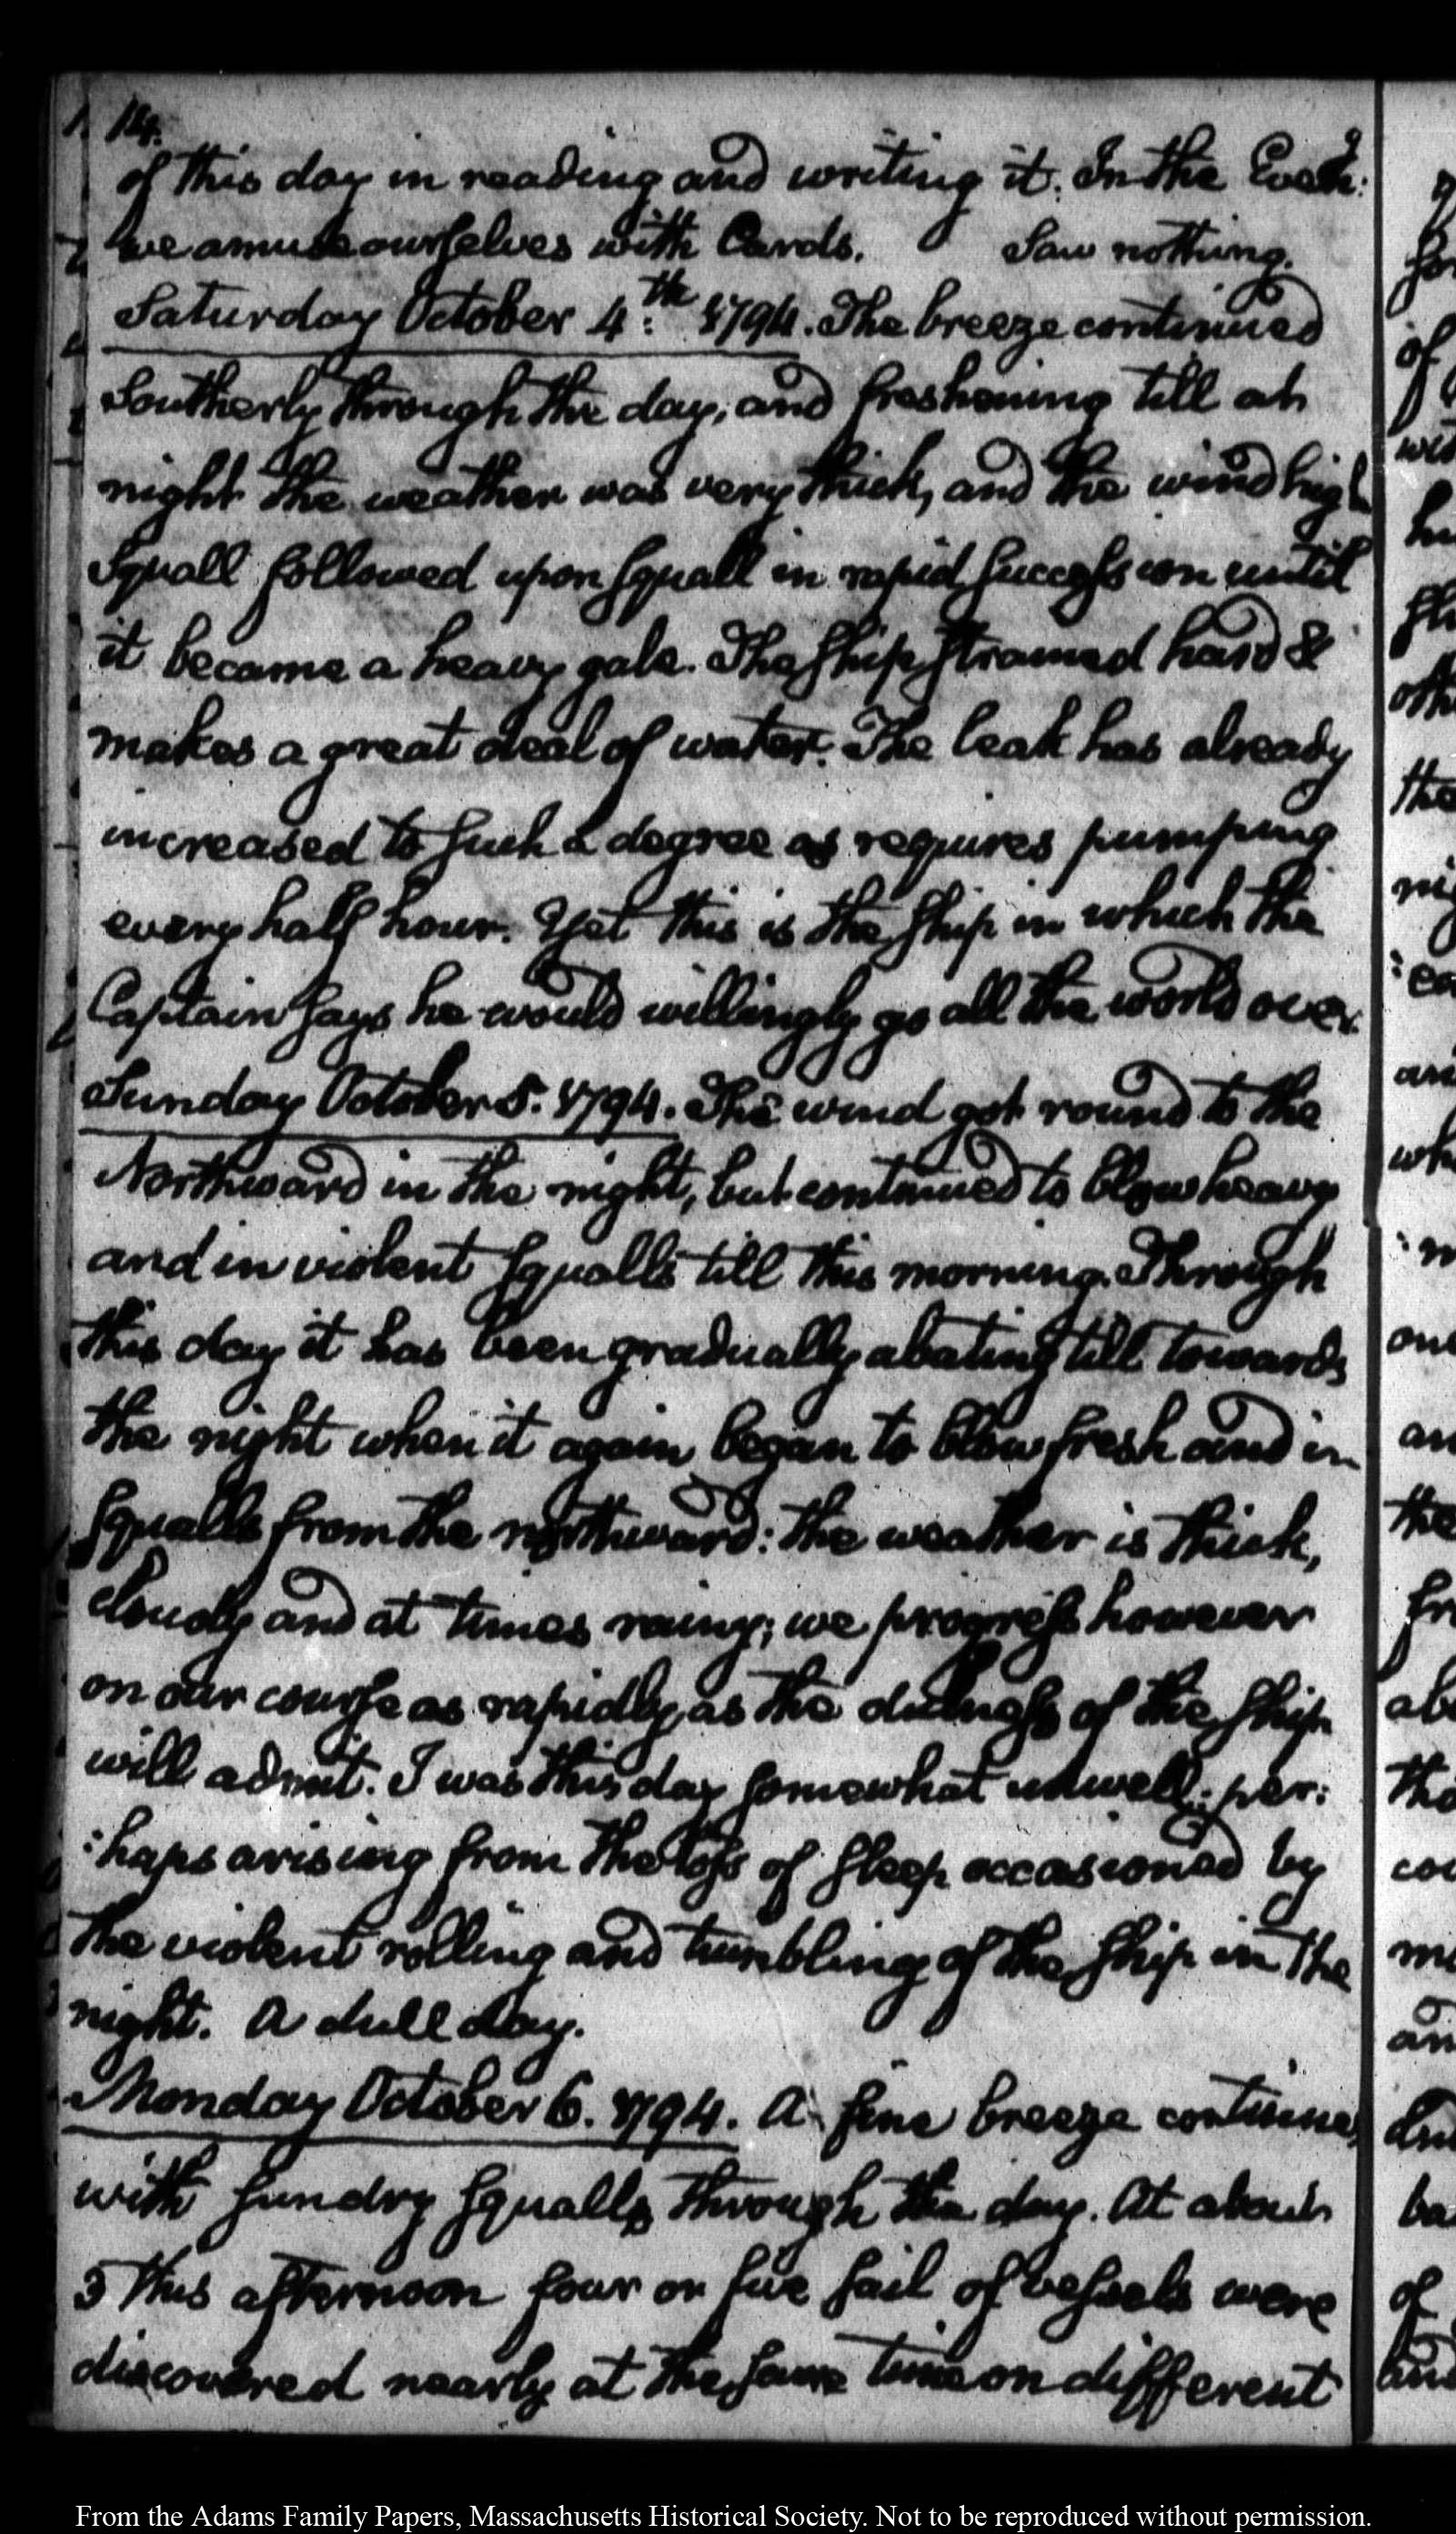 14.
of this day in reading and writing it. In the Eveg:
we amuse ourselves with Cards. Saw nothing.
Saturday October 4:th 1794. The breeze continued
Southerly through the day, and freshening till at
night the weather was very thick, and the wind high
Squall followed upon squall in rapid succession until
it became a heavy gale. The ship strained hard &
makes a great deal of water. The leak has already
increased to such a degree as requires pumping
every half hour. Yet this is the ship in which the
Captain says he would willingly go all the world over.
Sunday October 5. 1794. The wind got round to the
Northward in the night, but continued to blow heavy
and in violent squalls till this morning. Through
this day it has been gradually abating till towards
the night when it again began to blow fresh and in
squalls from the northward: the weather is thick,
cloudy and at times rainy; we progress however
on our course as rapidly as the dulness of the ship
will admit. I was this day somewhat unwell; per:
:haps arising from the loss of sleep occasioned by
the violent rolling and tumbling of the ship in the
night. A dull day.
Monday October 6. 1794. A fine breeze continues
with sundry squalls through the day. At about
3 this afternoon four or five sail of vessels were
discovered nearly at the same time on different
From the Adams Family Papers, Massachusetts Historical Society. Not to be reproduced without permission.